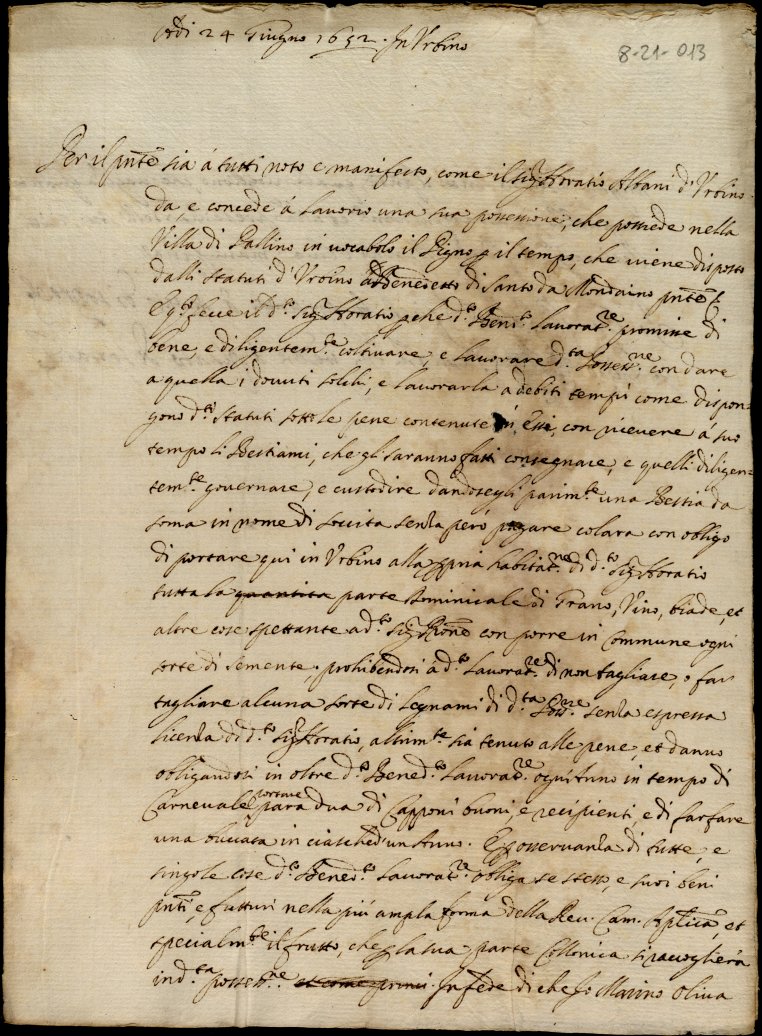 Adi 24 Giugno 1652. In Urbino
8-21-013
Per il pnte sia à tutti noto e manifesto, come il Sigr Horatio Albani d'Urbino
da, e concede à lavorio una sua possessione, che possiede nella
Villa di Gallino in vocabolo il Pigno p il tempo, che viene disposto
dalli statuti d'Urbino à Benedetto di Santo da Mondaino pnte
E qto fece il dto Sigr Horatio pche dto Bendo Lavoratre promise di
bene, e diligentemte coltivare, e lavorare dta Possessne con dare
a quella i dovuti solchi, e lavorarla à debiti tempi come dispon=
gono dti Statuti sotto le pene contenute in Essi, con ricevere à suo
tempo li Bestiami, che gli saranno fatti consegnare, e quelli diligen=
temte governare, e custodire dandosegli parimte una Bestia da
soma in nome di soccita senza però pagare colara con obligo
di portare qui in Urbino alla ppria habitatne di dto Sigr Horatio
tutta la quantita parte Dominicale di Grano, Vino, biade, et
altre cose spettante a dto Sigr Pne con porre in Commune ogni
sorte di semente, prohibendosi à dto Lavoratre di non tagliare, o far
tagliare alcuna sorte di legnami di dta Possne senza espressa
licenza di dto Sigr Horatio, altrimte sia tenuto alle pene et danno
obligandosi in oltre dto Benedto Lavoratre ogni Anno in tempo di
Carnevale portare para dua di Capponi buoni, e recipienti, e di far fare
una bucata in ciasched'un Anno. E p osservanza di tutte, e
singole cose dto Benedto Lavoratre obliga se stesso, e suoi beni
pnti, e futturi nella più ampla forma della Rev. Cam. Aplica, et
specialmte il frutto, che p la sua parte Collonica si racoglierà
in dta possessne et come primi. In fede di che Io Marino Oliva